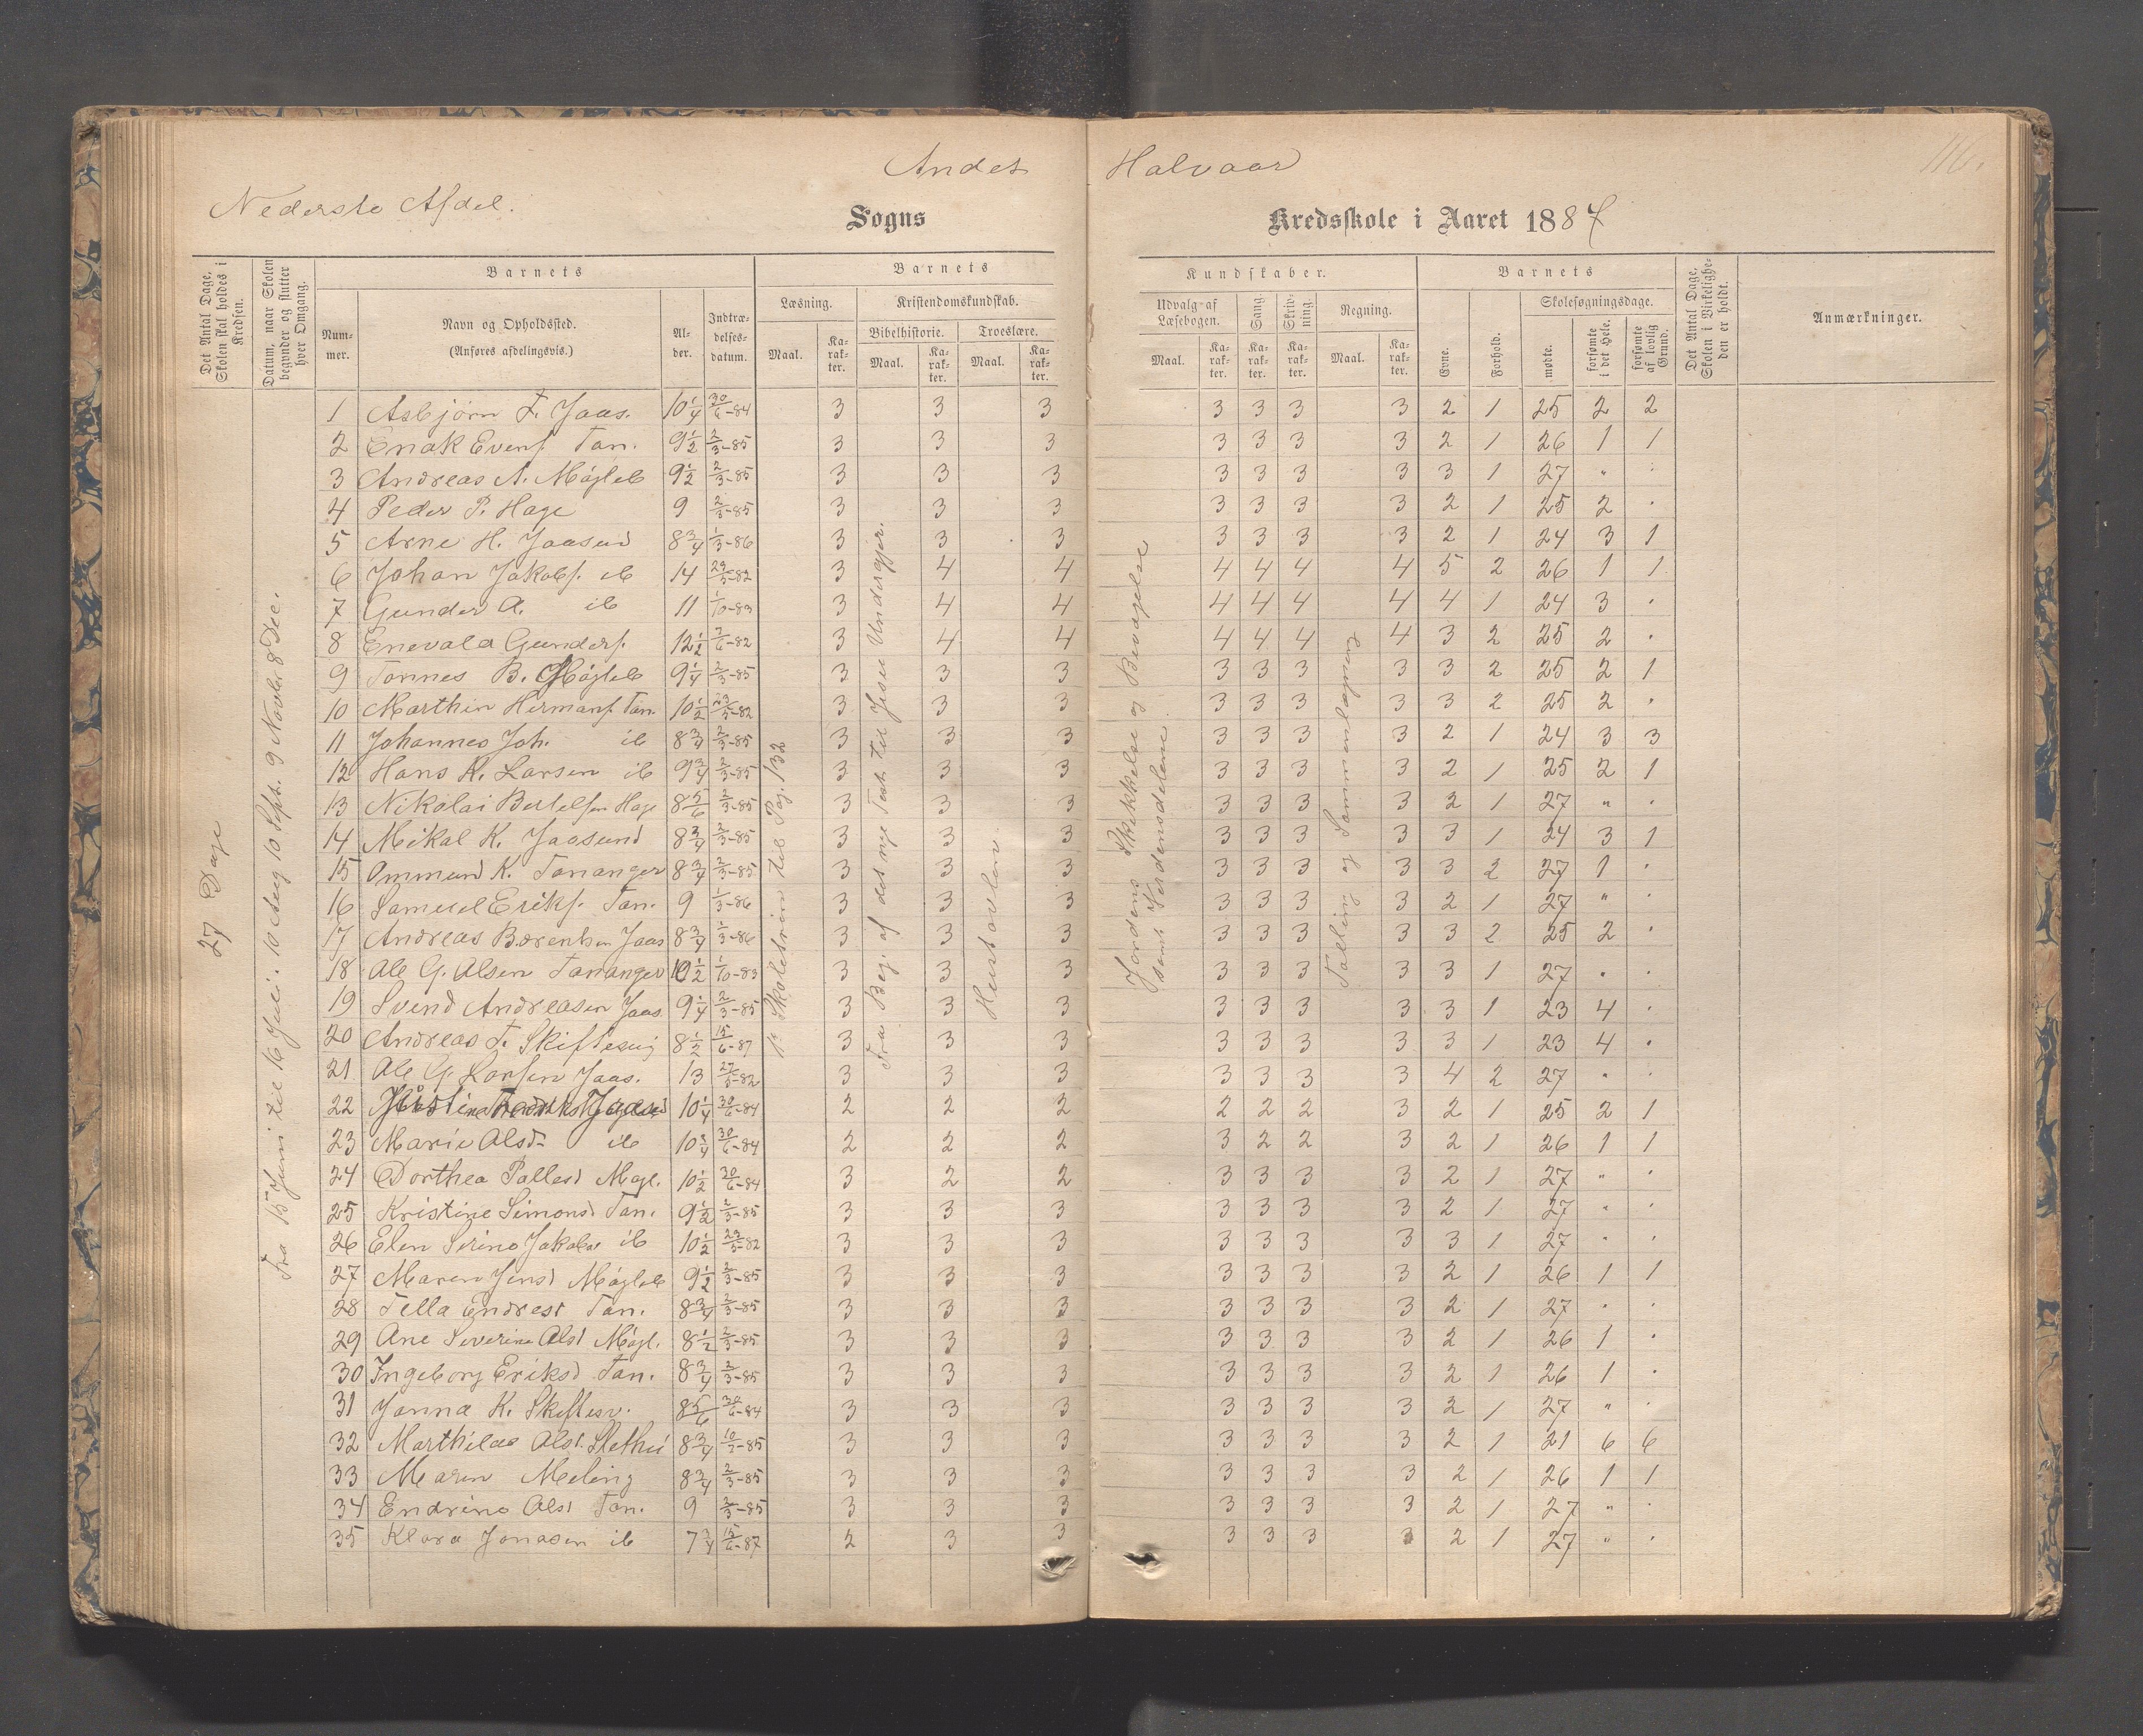 Andet Halvaar
116.
Nederste Afdel.
Sogns Kredsskole i Aaret 1887
Det Antal Dage, Skolen skal holdes i Kredsen.
Datum, naar Skolen begynder og slutter hver Omgang.
Barnets
Barnets
Kundskaber.
Barnets
Det Antal Dage, Skolen i Virkeligheden er holdt.
Anmærkninger.
Nummer.
Navn og Opholdssted.
(Anføres afdelingsvis.)
Alder.
Indtrædelses-datum.
Læsning.
Kristendomskundskab.
Udvalg af Læsebogen.
Sang.
Skrivning.
Regning.
Evne.
Forhold.
Skolesøgningsdage.
Maal.
Karakter.
Bibelhistorie.
Troeslære.
Maal.
Karakter.
Maal.
Karakter.
Maal.
Karakter.
Karakter.
Karakter.
Maal.
Karakter.
mødte.
forsømte i det Hele.
forsømte af lovlig Grund.
27 Dage
Fra 15 Juni til 16 Juli. 10 Aug 10 Sept. 9 Novbr. 8 Dec.
Skoletrin til Pag. 132
Fra Beg. af det nye Test. til Jesu Undergjer.
Hustavlen
Jordens Skikkelse og Bevægelse
samt Verdensdelene.
Tælling og Sammenlægning
1 Asbjørn T. Jaas. 10 1/4 30/6-84 3 3 3 3 3 3 3 2 1 25 2 2
2 Enok Evens. Tan. 9 1/2 2/3-85 3 3 3 3 3 3 3 2 1 26 1 1
3 Andreas A. Møgleb 9 1/2 2/3-85 3 3 3 3 3 3 3 3 1 27 " "
4 Peder P. Hage 9 2/3-85 3 3 3 3 3 3 3 2 1 25 2 .
5 Arne H. Jaasund 8 3/4 1/3-86 3 3 3 3 3 3 3 2 1 24 3 1
6 Johan Jakobs. ib 14 29/5-82 3 4 4 4 4 4 4 5 2 26 1 1
7 Gunder A. ib 11 1/10-83 3 4 4 4 4 4 4 4 1 24 3 .
8 Enevald Gunders. 12 1/2 7/6-82 3 4 4 4 4 4 4 3 2 25 2 .
9 Tønnes B. Møgleb 9 1/4 2/3-85 3 3 3 3 3 3 3 3 2 25 2 1
10 Marthin Hermans. Tan. 10 1/2 23/5-82 3 3 3 3 3 3 3 3 2 25 2 .
11 Johannes Joh. ib 8 3/4 2/3-85 3 3 3 3 3 3 3 2 1 24 3 3
12 Hans K. Larsen ib 9 3/4 2/3-85 3 3 3 3 3 3 3 2 1 25 2 1
13 Nikolai Bertelsen Hage 8 5/6 2/3-85 3 3 3 3 3 3 3 2 1 27 " .
14 Mikal K. Jaasund 8 3/4 2/3-85 3 3 3 3 3 3 3 3 1 24 3 1
15 Ommund K. Tananger 8 3/4 2/3-85 3 3 3 3 3 3 3 3 2 27 1 .
16 Samuel Eriks. Tan. 9 1/3-86 3 3 3 3 3 3 3 2 1 27 " .
17 Andreas Bærentsen Jaas 8 3/4 1/3-86 3 3 3 3 3 3 3 3 2 25 2 .
18 Ole G. Olsen Tananger 10 1/2 1/10-83 3 3 3 3 3 3 3 3 1 27 . .
19 Svend Andreasen Jaas. 9 1/4 2/3-85 3 3 3 3 3 3 3 3 1 23 4 .
20 Andreas T. Skiftesvig 8 1/2 15/6-87 3 3 3 3 3 3 3 3 1 23 4 .
21 Ole G. Larsen Jaas. 13 27/5-82 3 3 3 3 3 3 3 4 2 27 . .
22 10 1/4 30/6-84 2 2 2 2 2 2 3 2 1 25 2 1
23 Marie Olsd. ib 10 1/4 30/6-84 2 2 2 3 2 2 3 2 1 26 1 1
24 Dorthea Pallesd Møgl. 10 1/2 30/6-84 3 2 2 3 3 3 3 2 1 27 " .
25 Kristine Simonsd Tan. 9 1/2 2/3-85 3 3 3 3 3 3 3 2 1 27 " .
26 Elen Serine Jakobsd ib 10 1/2 29/5-82 3 3 3 3 3 3 3 3 1 27 . .
27 Maren Jensd Møgleb 9 1/2 2/3-85 3 3 3 3 3 3 3 2 1 26 1 1
28 Tella Endresd Tan. 8 3/4 2/3-85 3 3 3 3 3 3 3 2 1 27 . .
29 Ane Severine Olsd Møgl. 8 1/2 2/3-85 3 3 3 3 3 3 3 2 1 26 1 .
30 Ingeborg Eriksd Tan. 8 3/4 2/3-85 3 3 3 3 3 3 3 2 1 26 1 .
31 Janna K. Skiftesv. 8 5/6 30/6-84 3 3 3 3 3 3 3 2 1 27 " .
32 Marthilde Olsd. 8 3/4 10/2-85 3 3 3 3 3 3 3 2 1 21 6 6
33 Maren Meling 8 3/4 2/3-85 3 3 3 3 3 3 3 2 1 26 1 1
34 Endrine Olsd Tan. 9 2/3-85 3 3 3 3 3 3 3 2 1 27 " .
35 Klara Jonasen ib 7 3/4 15/6-87 2 3 3 3 3 3 3 2 1 27 " .